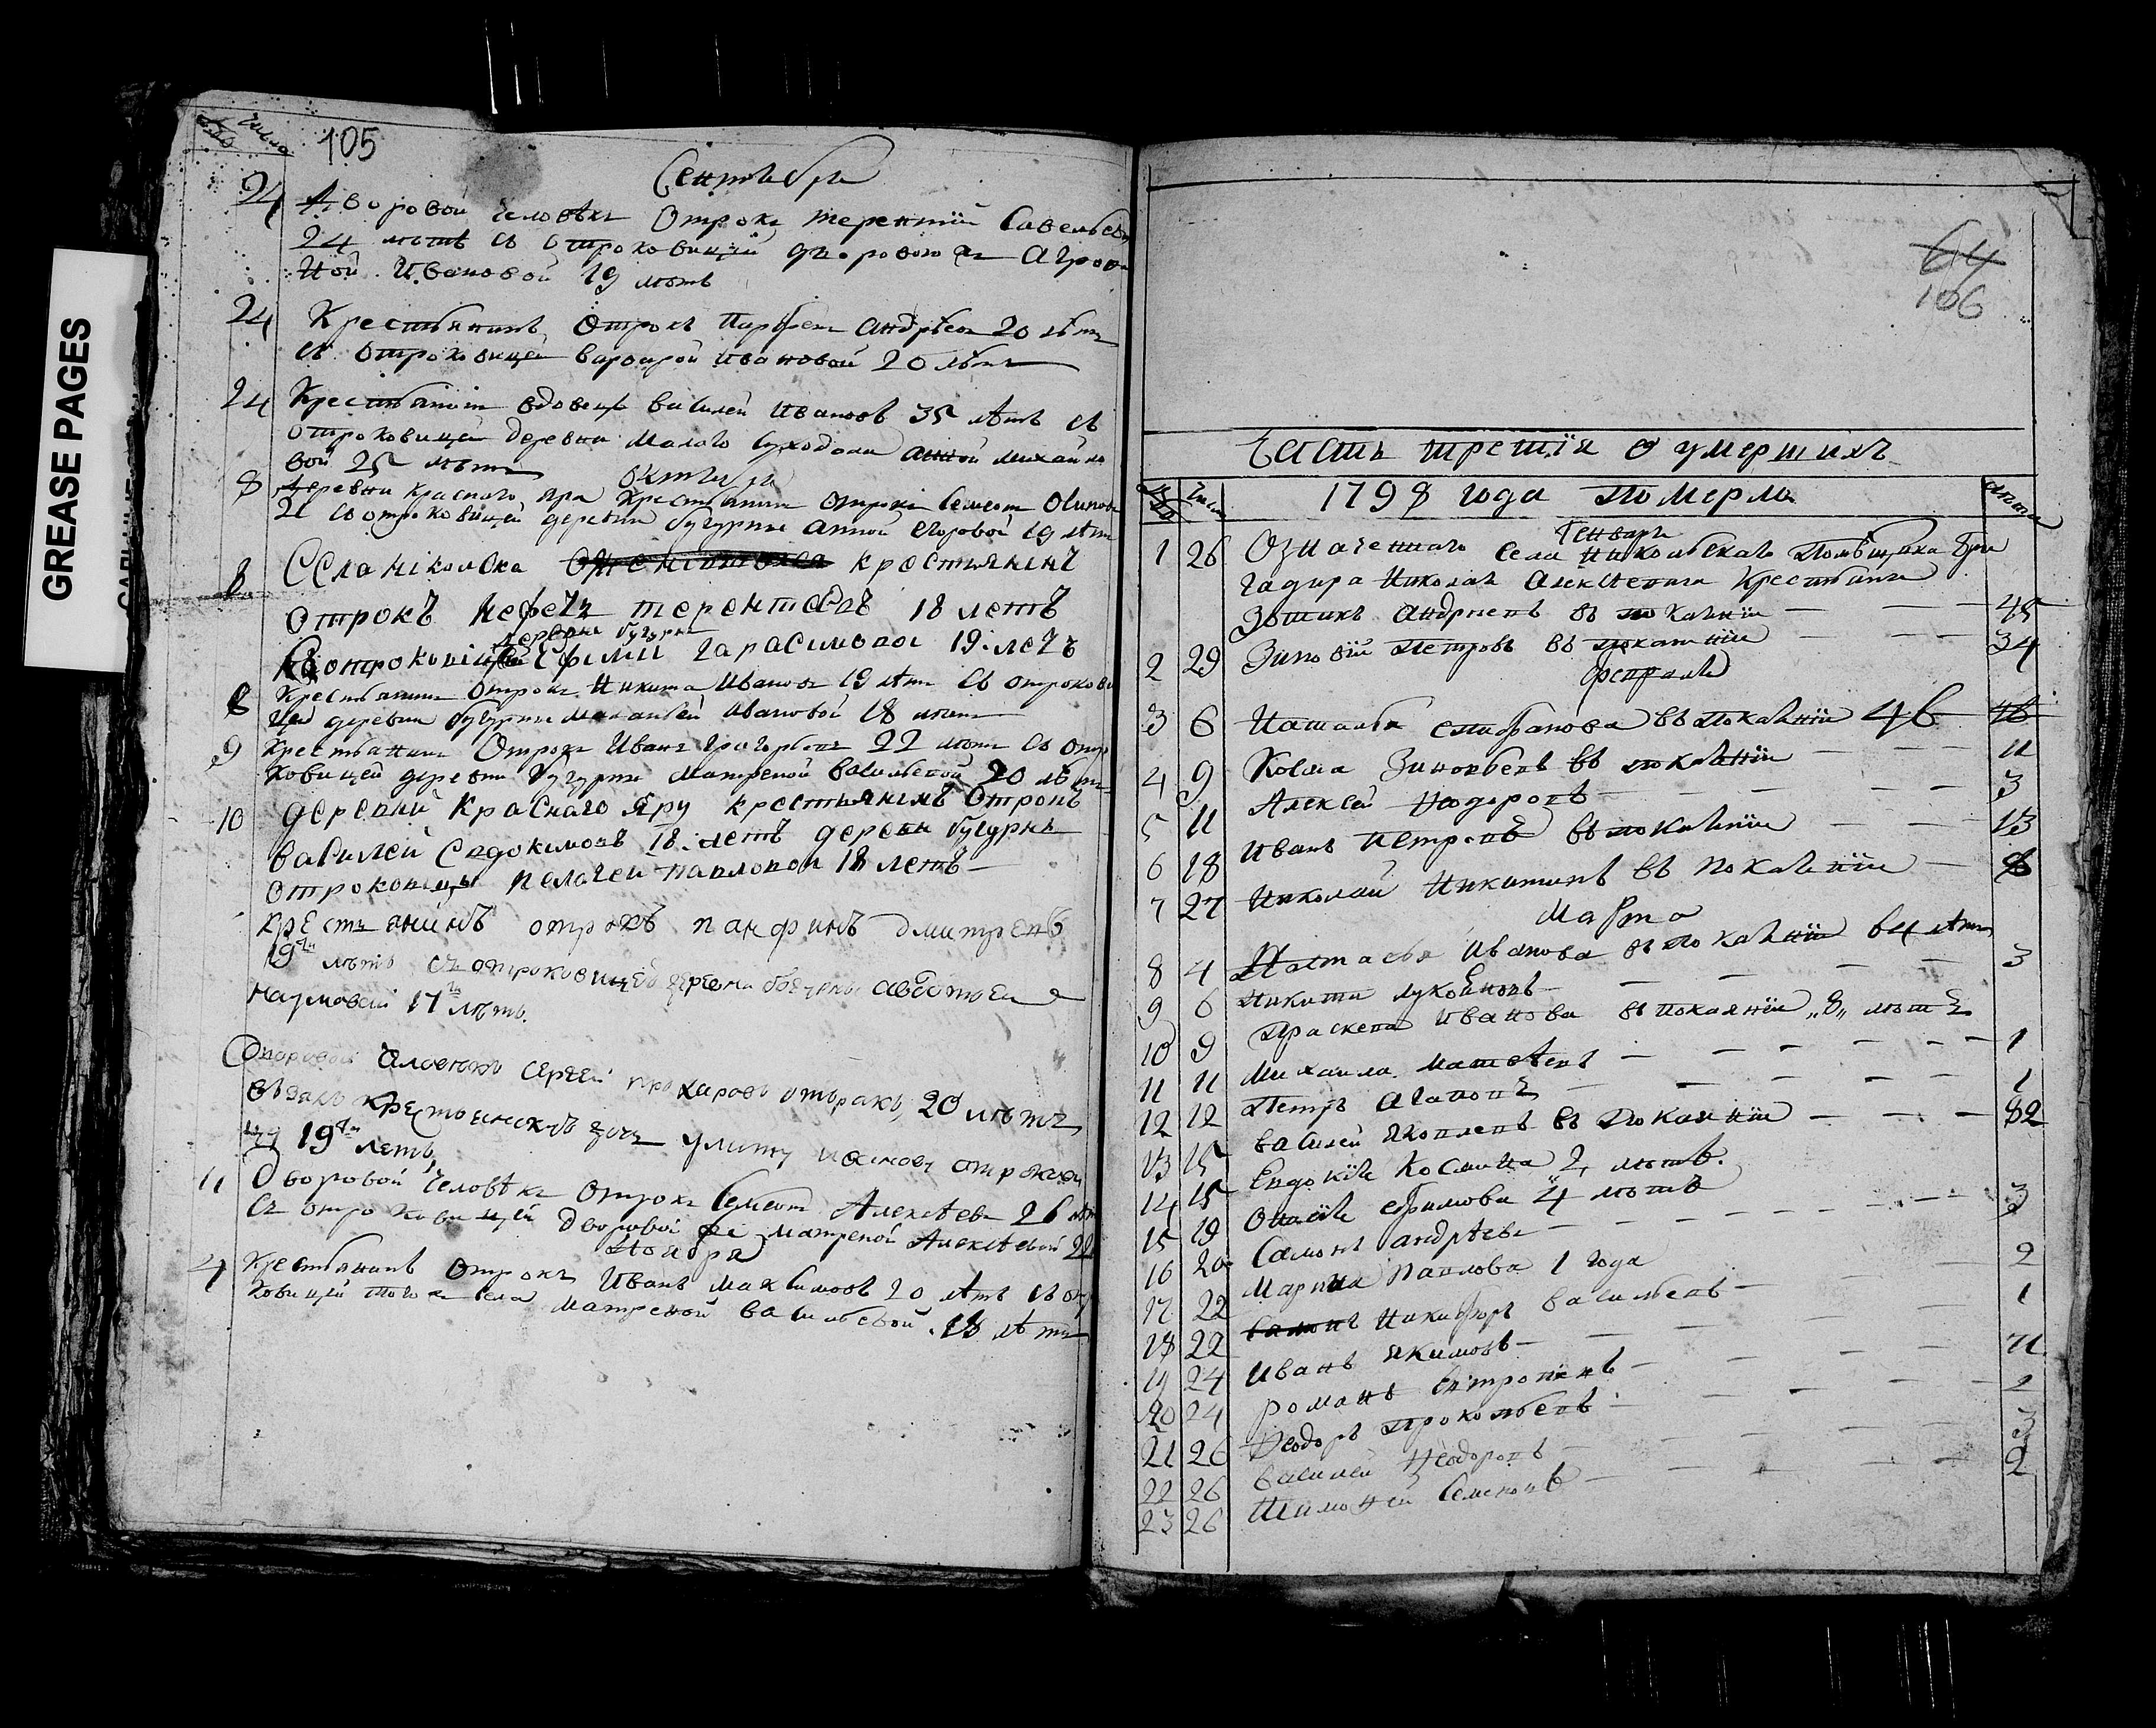 GREASE PAGES
105
Сентября
24 Дворовой человекъ Отрокъ терентій Савельевъ
24 летъ съ Отроковицей дворовою Агропи
ной Ивановой 19 летъ
24 Крестьянинъ Отрокъ Парфенъ Андрѣевъ 20 лѣтъ
съ Отроковицей варварой ивановой 20 лѣтъ
24 Крестьянинъ вдовецъ василей Ивановъ 35 лѣтъ съ
Отроковицей деревни Малого Суходола анной михайло
вой 25 лѣтъ
Октября
8 Деревни Красного яра Крестьянинъ Отрокъ Семенъ Осиповъ
21 со отроковицей деревни бугурны анной егоровой 19 лѣтъ
8 ССла нікольска крестьянінъ
отрокъ терентьевъ 18 летъ
деревни бугурны
соотроковіцей гарасимовои 19 летъ
8 Крестьянинъ Отрокъ Никита Ивановъ 19 лѣтъ съ отрокови
цей деревни бугурны Маланьей ивановой 18 летъ
9 Крестьянинъ Отрокъ Иванъ григорьевъ 22 летъ съ отро
ковицей деревни бугурны Матреной васильевой 20 лѣтъ
10 деревни Краснаго яру крестьянінъ Отрокъ
василей Евдокимовъ 18 летъ деревни бугурны
отроковицы пелагеи павловой 18 летъ
крестьянинъ отрокъ панфилъ дмитревъ
19ти летъ съ отроковицей деревни бугурны авдотьей
наумовой 17ти летъ.
Дворовой человекъ сергей прохаровъ отрокъ 20 летъ
взялъ крестьянскую дочь улиту иванову отрокови
цу 19ти летъ
11 Дворовой человѣкъ Отрокъ Семенъ Алексѣевъ 26 лѣтъ
съ отроковицей дворовой матреной Алексѣевой 22
Ноября
4 Крестьянинъ Отрокъ Иванъ Максимовъ 20 лѣтъ съ отро
ковицей того села матреной васильевой 18 лѣтъ
64
106
Часть третія о умершихъ
число 1798 года померло лѣта
Генваря
1 26 Означеннаго села никольскаго помѣщика бри
гадира Николая Алексѣевича Крестьянинъ
Зотикъ андреевъ въ покаяніи 45
2 29 Зиновій петровъ въ покаяніи 34
февраля
3 6 Наталья стефанова въ покаяніи 46 46
4 9 Косма Зиновьевъ въ покаяніи 11
5 11 Алексей Феодоровъ 3
6 18 иванъ петровъ въ покаяніи 13
7 27 Николай Никитинъ въ покаяніи 8
Марта
8 4 Настасья иванова въ покаяніи 64 лѣтъ
9 6 никита лукояновъ 3
10 9 праскева иванова въ покаяніи „8„ летъ
11 11 михаила матвѣевъ 1
12 12 петръ агаповъ 1
13 15 василей яковлевъ въ покаяніи 82
14 15 Евдокія Космина 2 летъ.
15 19 ефимова 4 летъ
16 20 Самонъ андрѣевъ 3
17 22 Марина павлова 1 года
18 22 самонъ никифоръ васильевъ 2
19 24 иванъ якимовъ 1
20 24 романъ ентропенъ 71
21 26 Феодоръ прокопьевъ 2
22 26 василей Феодоровъ 3
23 26 тимофей семеновъ 2